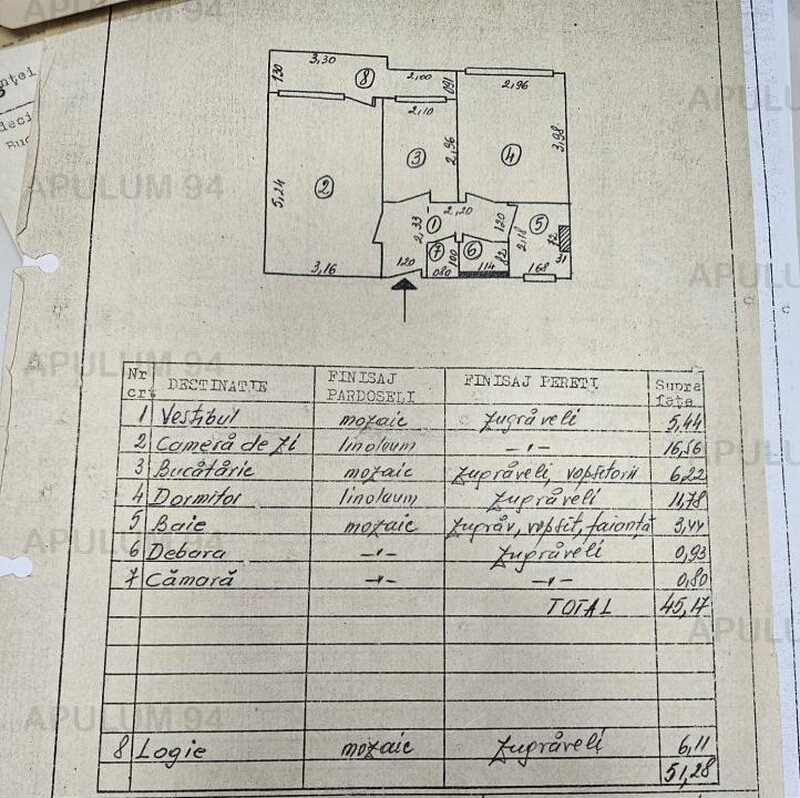 nței
deci
Buc
APULUM 94
3,30
1,30
8
2,00
1,60
2,96
2,10
5,24
2
3
2,96
4
3,98
2,20
1
2,33
1,20
5
2,18
72
31
7
1,00
6
82
3,16
1,20
0,80
1,14
1,68
APULUM 94
APULUM 94
Nr crt DESTINATIE FINISAJ PARDOSELI FINISAJ PERETI Supra fațe
1 Vestibul mozaic zugrăveli 5,44
2 Cameră de zi linoleum -"- 16,56
3 Bucătărie mozaic zugrăveli, vopsitorii 6,22
4 Dormitor linoleum zugrăveli 11,78
5 Baie mozaic zugrăv, vopsit, faianță 3,44
6 Debara -"- zugrăveli 0,93
7 Cămară -"- -"- 0,80
TOTAL 45,17
8 Logie mozaic zugrăveli 6,11
51,28